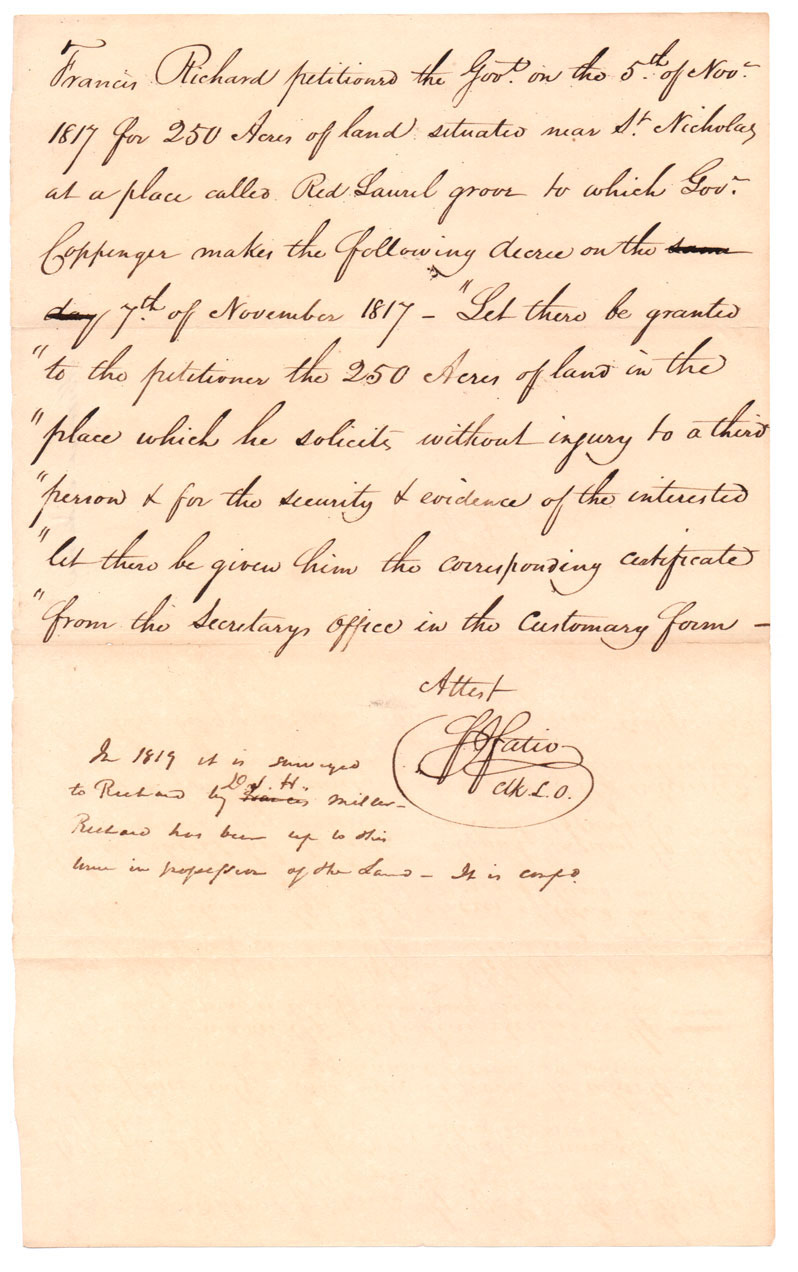 Francis Richard petitiond the Govr. on the 5th. of Novr.
1817 for 250 Acres of land situated near St. Nicholas
at a place called Red Laurel grove to which Govr.
Coppinger makes the following decree on the same
day 7th. of November 1817 – "Let there be granted
"to the petitioner the 250 Acres of land in the
"place which he solicits without injury to a third
"person & for the security & evidence of the interested
"let there be given him the corresponding certificate
"from the Secretarys Office in the Customary form –
Attest
F J Fatio
Clk L.O.
In 1819 it is surveyed
to Richard by D. H. Francis Miller –
Richard has been up to this
time in possession of the Land – It is confd.